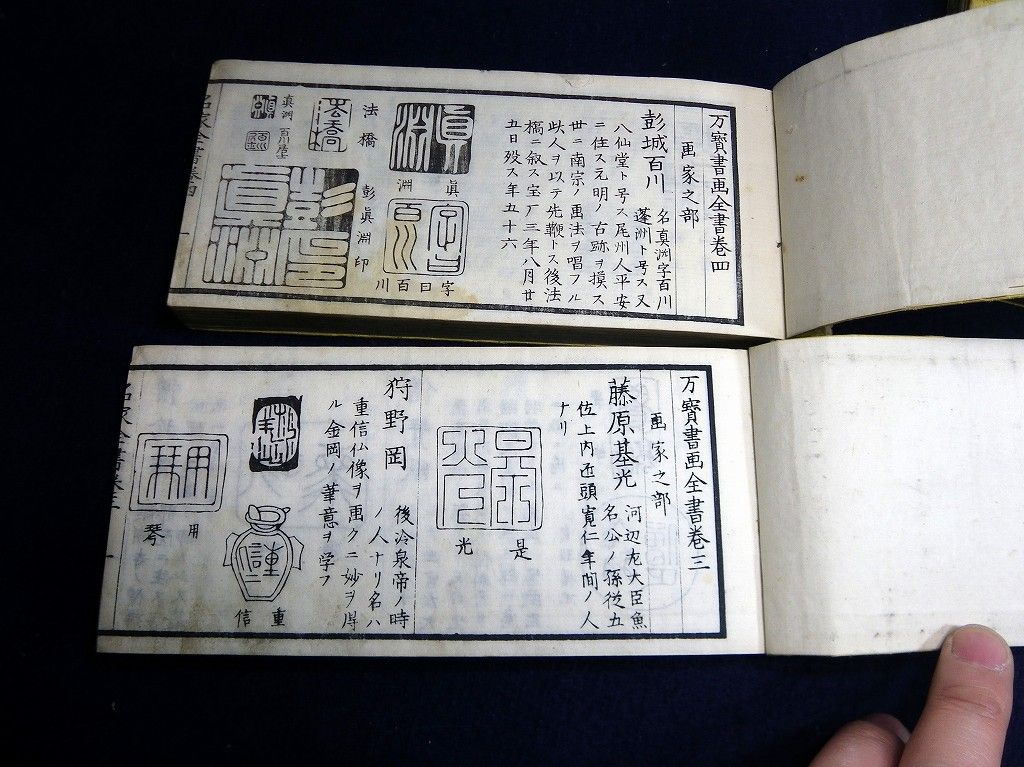 万寶書画全書巻四
画家之部
彭城百川
名真淵字百川
蓬洲ト号ス又
八仙堂ト号ス尾州人平安
ニ住ス元明ノ古跡ヲ摸ス
世ニ南宗ノ画法ヲ唱フル
此人ヲ以テ先鞭トス後法
橋ニ叙ス宝厂三年八月廿
五日歿ス年五十六
眞
淵
字曰百川
法橋
彭眞淵印
真淵
百川居士
万寶書画全書巻三
画家之部
藤原基光
河辺左大臣魚
名公ノ孫従五
位上内匠頭寛仁年間ノ人
ナリ
是
光
狩野岡
後冷泉帝ノ時
ノ人ナリ名ハ
重信仏像ヲ画クニ妙ヲ得
ル金岡ノ筆意ヲ学フ
重
信
用
琴